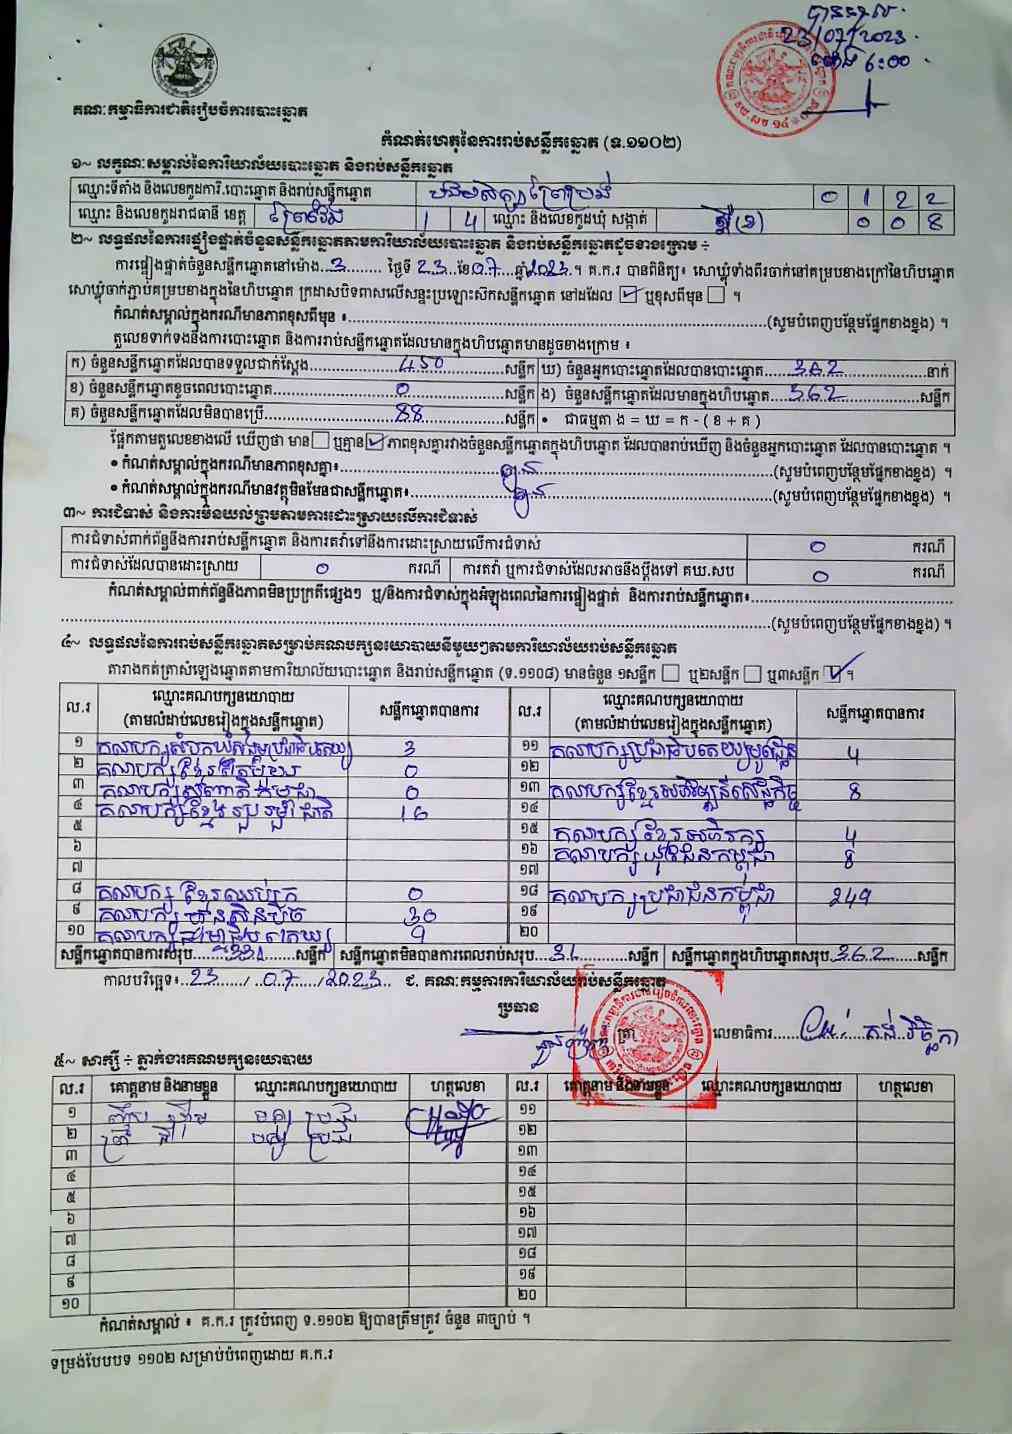 បានទទួល
23/07/2023
ម៉ោង 6:00
គណៈកម្មាធិការជាតិរៀបចំការបោះឆ្នោត
កំណត់ហេតុនៃការរាប់សន្លឹកឆ្នោត (ទ.១១០២)
១~ លក្ខណៈសម្គាល់នៃការិយាល័យបោះឆ្នោត និងរាប់សន្លឹកឆ្នោត
ឈ្មោះទីតាំង និងលេខកូដការិ.បោះឆ្នោត និងរាប់សន្លឹកឆ្នោត 0 1 2 2
ឈ្មោះ និងលេខកូដរាជធានី ខេត្ត ព្រៃវែង 1 4 ឈ្មោះ និងលេខកូដឃុំ សង្កាត់ 0 0 8
២~ លទ្ធផលនៃការផ្ទៀងផ្ទាត់ចំនួនសន្លឹកឆ្នោតតាមការិយាល័យបោះឆ្នោត និងរាប់សន្លឹកឆ្នោតដូចខាងក្រោម ៖
ការផ្ទៀងផ្ទាត់ចំនួនសន្លឹកឆ្នោតនៅម៉ោង...3......... ថ្ងៃទី 23. ខែ07...ឆ្នាំ2023.។ គ.ក.រ បានពិនិត្យ៖ សោឃ្លុំទាំងពីរចាក់នៅគម្របខាងក្រៅនៃហិបឆ្នោត
សោឃ្លុំចាក់ភ្ជាប់គម្របខាងក្នុងនៃហិបឆ្នោត ក្រដាសបិទពាសលើសន្ទះប្រឡោះស៊កសន្លឹកឆ្នោត នៅដដែល ☑ ឬខុសពីមុន ☐ ។
កំណត់សម្គាល់ក្នុងករណីមានភាពខុសពីមុន ៖..........(សូមបំពេញបន្ថែមផ្នែកខាងខ្នង) ។
តួលេខទាក់ទងនឹងការបោះឆ្នោត និងការរាប់សន្លឹកឆ្នោតដែលមានក្នុងហិបឆ្នោតមានដូចខាងក្រោម ៖
ក) ចំនួនសន្លឹកឆ្នោតដែលបានទទួលជាក់ស្តែង..........450..........សន្លឹក ឃ) ចំនួនអ្នកបោះឆ្នោតដែលបានបោះឆ្នោត.....362..........នាក់
ខ) ចំនួនសន្លឹកឆ្នោតខូចពេលបោះឆ្នោត..........0..........សន្លឹក ង) ចំនួនសន្លឹកឆ្នោតដែលមានក្នុងហិបឆ្នោត....362..........សន្លឹក
គ) ចំនួនសន្លឹកឆ្នោតដែលមិនបានប្រើ..........88..........សន្លឹក • ជាធម្មតា ង = ឃ = ក - ( ខ + គ )
ផ្អែកតាមតួលេខខាងលើ ឃើញថា មាន ☐ ឬគ្មាន ☑ ភាពខុសគ្នារវាងចំនួនសន្លឹកឆ្នោតក្នុងហិបឆ្នោត ដែលបានរាប់ឃើញ និងចំនួនអ្នកបោះឆ្នោត ដែលបានបោះឆ្នោត ។
• កំណត់សម្គាល់ក្នុងករណីមានភាពខុសគ្នា៖..........គ្មាន..........(សូមបំពេញបន្ថែមផ្នែកខាងខ្នង) ។
• កំណត់សម្គាល់ក្នុងករណីមានវត្ថុមិនមែនជាសន្លឹកឆ្នោត៖..........គ្មាន..........(សូមបំពេញបន្ថែមផ្នែកខាងខ្នង) ។
៣~ ការជំទាស់ និងការមិនយល់ព្រមតាមការដោះស្រាយលើការជំទាស់
ការជំទាស់ពាក់ព័ន្ធនឹងការរាប់សន្លឹកឆ្នោត និងការតវ៉ាទៅនឹងការដោះស្រាយលើការជំទាស់ 0 ករណី
ការជំទាស់ដែលបានដោះស្រាយ 0 ករណី ការតវ៉ា ឬការជំទាស់ដែលអាចនឹងប្តឹងទៅ គឃ.សប 0 ករណី
កំណត់សម្គាល់ពាក់ព័ន្ធនឹងភាពមិនប្រក្រតីផ្សេងៗ ឬ/និងការជំទាស់ក្នុងអំឡុងពេលនៃការផ្ទៀងផ្ទាត់ និងការរាប់សន្លឹកឆ្នោត៖..........
..........(សូមបំពេញបន្ថែមផ្នែកខាងខ្នង) ។
៤~ លទ្ធផលនៃការរាប់សន្លឹកឆ្នោតសម្រាប់គណបក្សនយោបាយនីមួយៗតាមការិយាល័យរាប់សន្លឹកឆ្នោត
តារាងកត់ត្រាសំឡេងឆ្នោតតាមការិយាល័យបោះឆ្នោត និងរាប់សន្លឹកឆ្នោត (ទ.១១០៨) មានចំនួន ១សន្លឹក ☐ ឬ២សន្លឹក ☐ ឬ៣សន្លឹក ☑ ។
ល.រ ឈ្មោះគណបក្សនយោបាយ (តាមលំដាប់លេខរៀងក្នុងសន្លឹកឆ្នោត) សន្លឹកឆ្នោតបានការ ល.រ ឈ្មោះគណបក្សនយោបាយ (តាមលំដាប់លេខរៀងក្នុងសន្លឹកឆ្នោត) សន្លឹកឆ្នោតបានការ
១ គណបក្សសំបុកឃ្មុំសង្គមប្រជាធិបតេយ្យ 3 ១១ គណបក្សប្រជាធិបតេយ្យមូលដ្ឋាន 4
២ គណបក្ស ខ្មែរ 0 ១២
៣ គណបក្សសញ្ជាតិកម្ពុជា 0 ១៣ គណបក្សខ្មែរអភិវឌ្ឍន៍សេដ្ឋកិច្ច 8
៤ គណបក្សខ្មែររួបរួមជាតិ 16 ១៤
៥ ១៥ គណបក្សខ្មែរអភិរក្ស 4
៦ ១៦ គណបក្សយុវជនកម្ពុជា 8
៧ ១៧
៨ គណបក្ស ខ្មែរឈប់ក្រ 0 ១៨ គណបក្សប្រជាជនកម្ពុជា 249
៩ គណបក្ស ហ្វ៊ុនស៊ិនប៉ិច 30 ១៩
១០ គណបក្សធម្មាធិបតេយ្យ 9 ២០
សន្លឹកឆ្នោតបានការសរុប....331......សន្លឹក សន្លឹកឆ្នោតមិនបានការពេលរាប់សរុប...31......សន្លឹក សន្លឹកឆ្នោតក្នុងហិបឆ្នោតសរុប...362......សន្លឹក
កាលបរិច្ឆេទ៖..23....../..07....../2023.. ជ. គណៈកម្មការការិយាល័យរាប់សន្លឹកឆ្នោត
ប្រធាន
ត្រា លេខាធិការ
៥~ សាក្សី ៖ ភ្នាក់ងារគណបក្សនយោបាយ
ល.រ គោត្តនាម និងនាមខ្លួន ឈ្មោះគណបក្សនយោបាយ ហត្ថលេខា ល.រ គោត្តនាម និងនាមខ្លួន ឈ្មោះគណបក្សនយោបាយ ហត្ថលេខា
១ ១១
២ ១២
៣ ១៣
៤ ១៤
៥ ១៥
៦ ១៦
៧ ១៧
៨ ១៨
៩ ១៩
១០ ២០
កំណត់សម្គាល់ ៖ គ.ក.រ ត្រូវបំពេញ ទ.១១០២ ឱ្យបានត្រឹមត្រូវ ចំនួន ៣ច្បាប់ ។
ទម្រង់បែបបទ ១១០២ សម្រាប់បំពេញដោយ គ.ក.រ